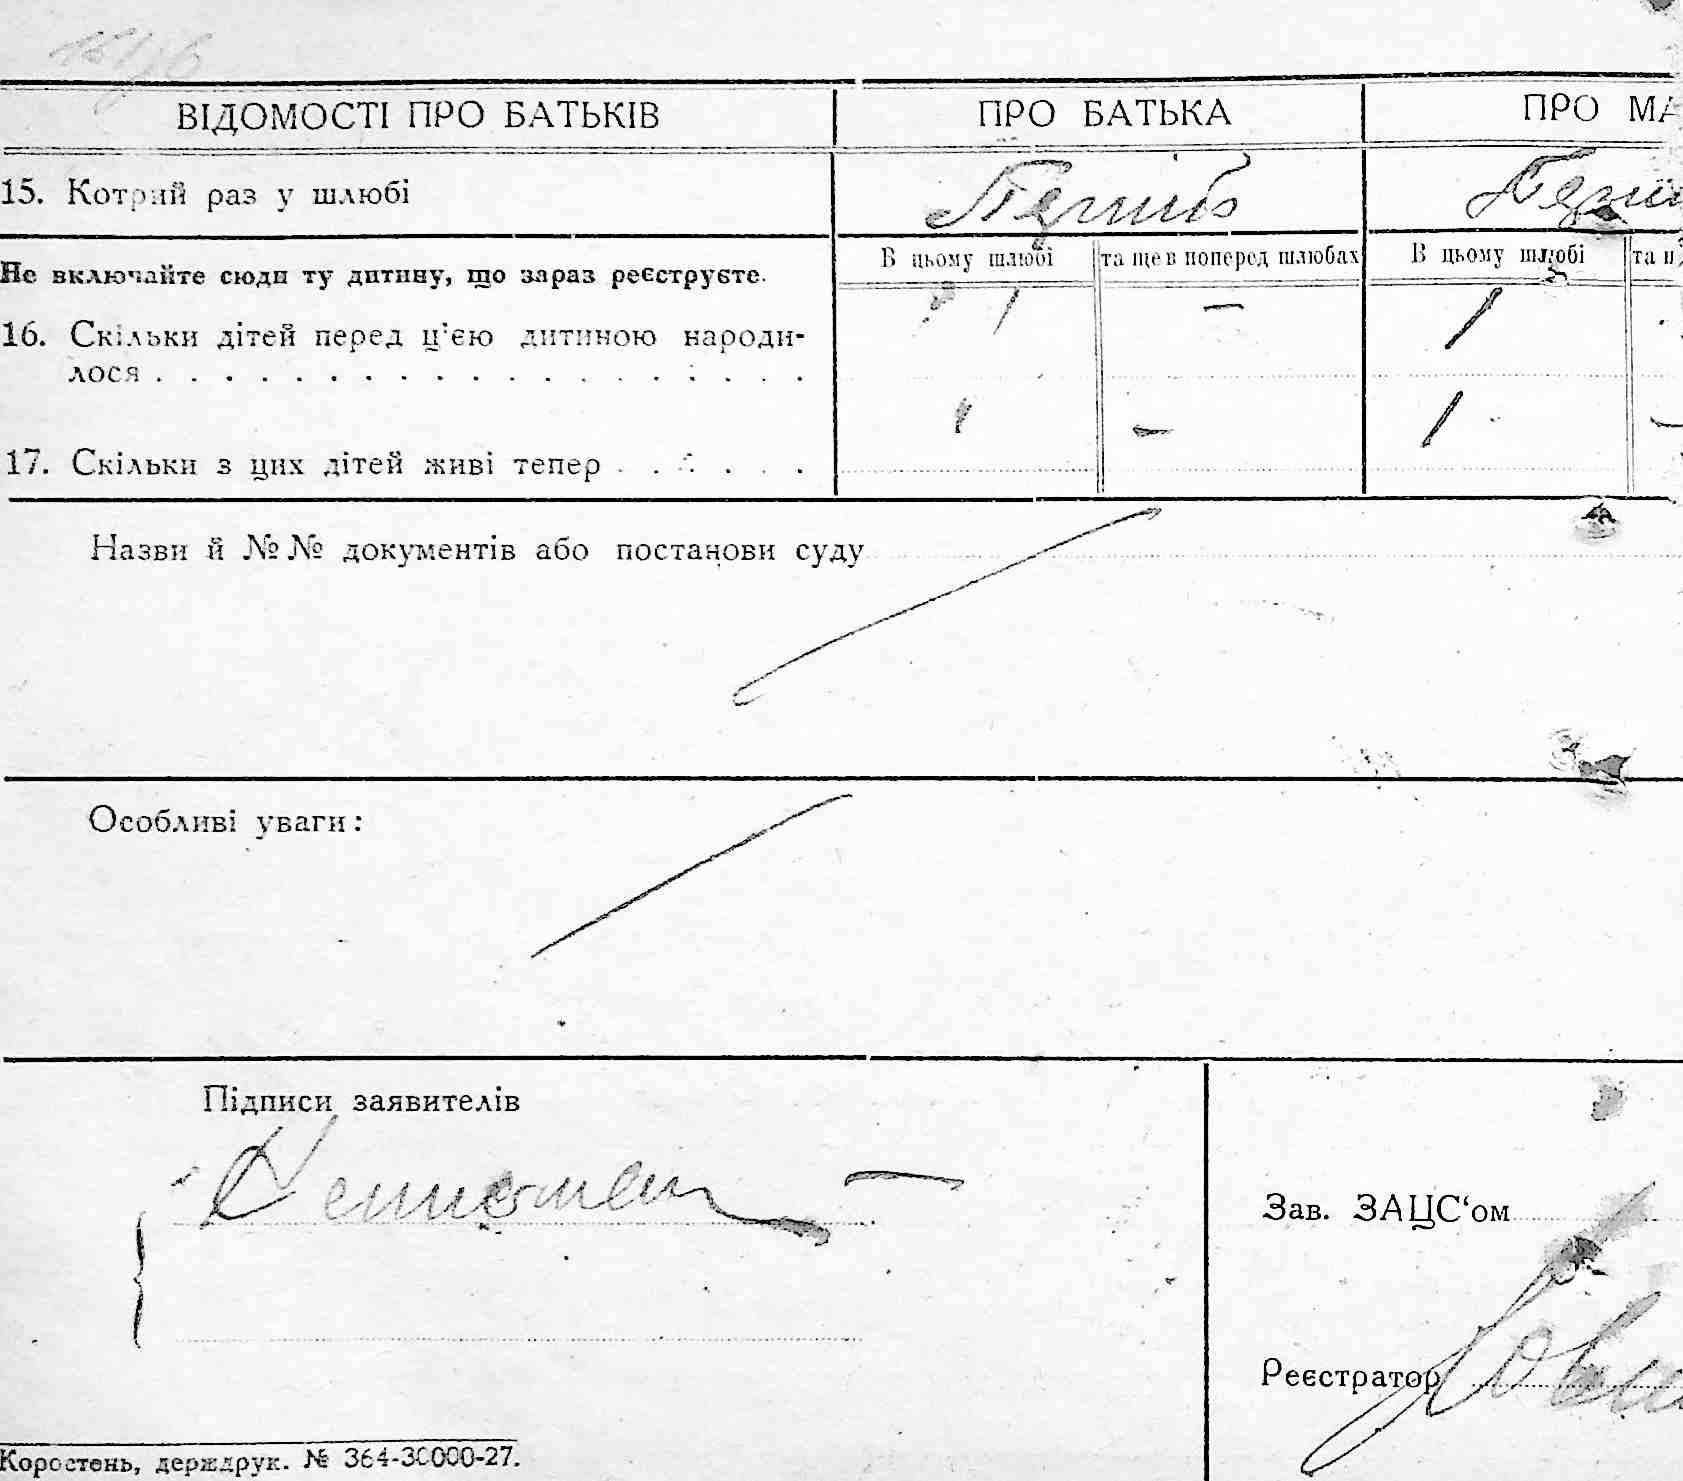 ВІДОМОСТІ ПРО БАТЬКІВ ПРО БАТЬКА ПРО МА
15. Котрий раз у шлюбі
Не включайте сюди ту дитину, що зараз реєструєте. В цьому шлюбі та ще в поперед шлюбах В цьому шлюбі та
16. Скільки дітей перед ц'єю дитиною народи- 1 — 1
лося
17. Скільки з цих дітей живі тепер — 1 —
Назви й №№ документів або постанови суду
Особливі уваги:
Підписи заявителів
Зав. ЗАЦС‘ом
Реєстратор
Коростень, держдрук. № 364-30000-27.